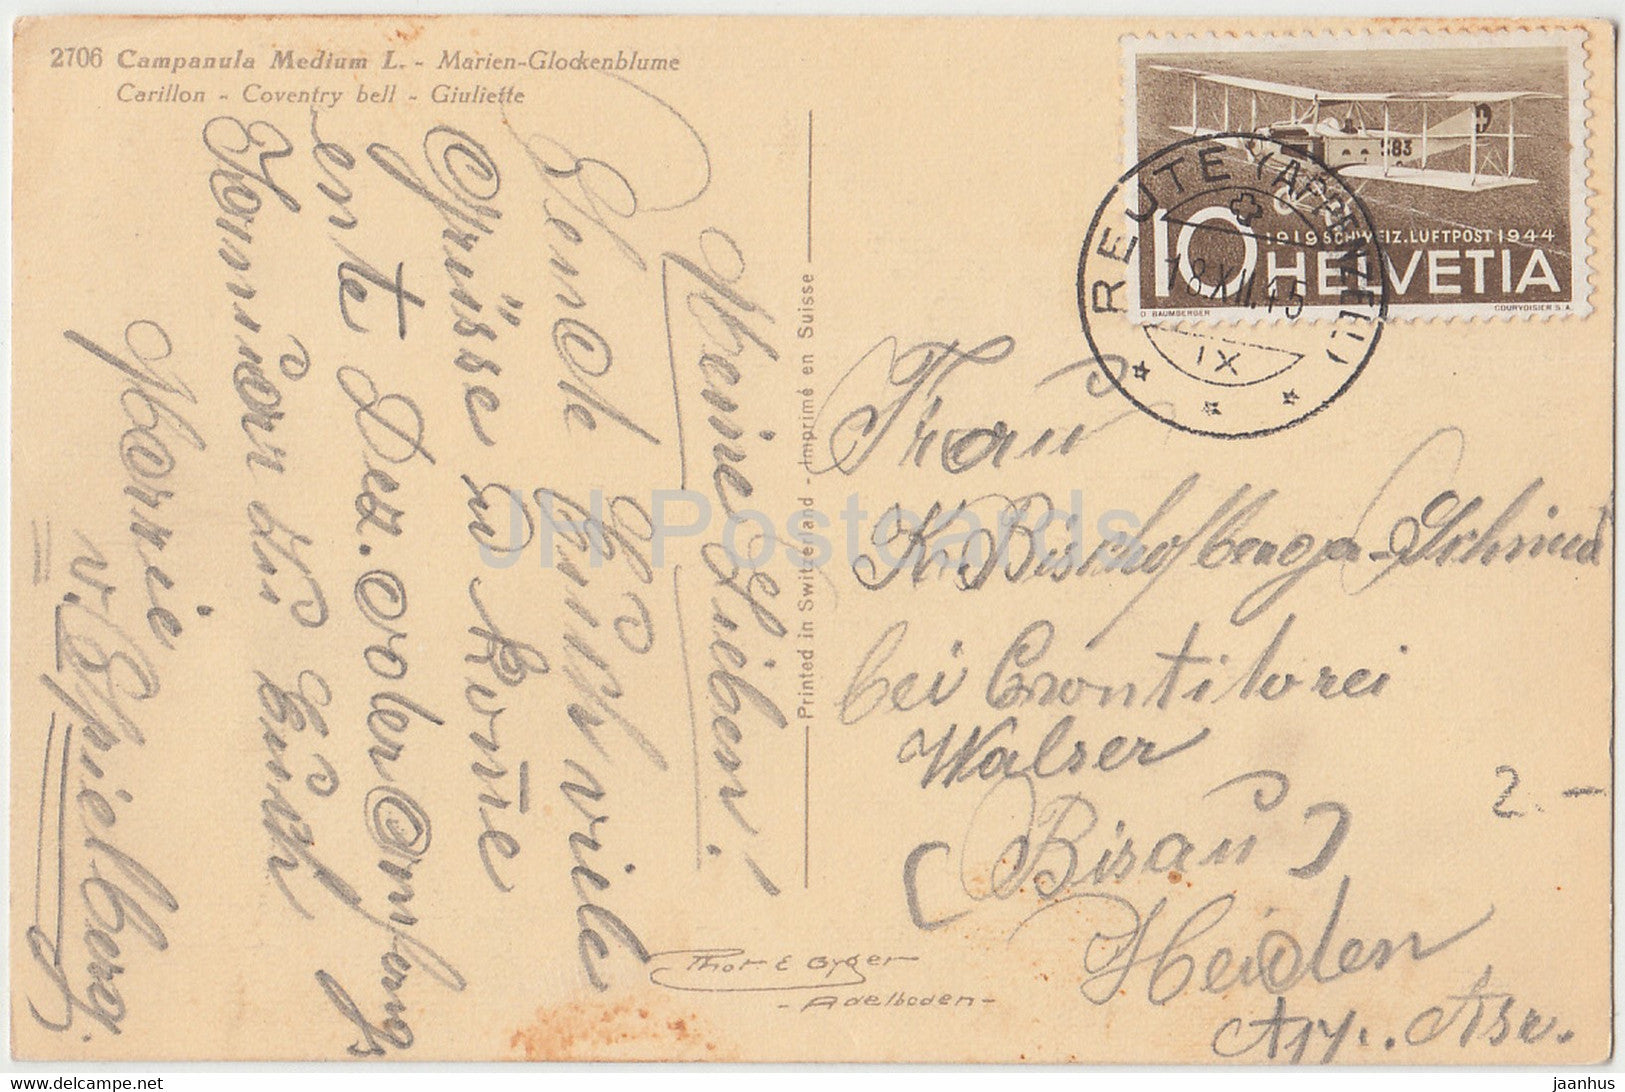 2706 Campanula Medium L. - Marien-Glockenblume
Carillon - Coventry bell - Giuliette
Meine Lieben!
Sende Euch viele
Grüsse u. komme
ente Dez. oder Anfangs
Januar zu Euch
Marie
v. Spielberg.
Printed in Switzerland - Imprimé en Suisse
Phot E Gyger
- Adelboden -
REUTE (APPENZELL)
18.XII.45
IX
583
10
1919 SCHWEIZ. LUFTPOST 1944
HELVETIA
O. BAUMBERGER
COURVOISIER S.A.
Frau
K. Bischofberger-Schmid
bei
Walser
(Bisau)
Heiden
App. A.Rh.
2.-
JH Postcards
www.delcampe.net
jaanhus